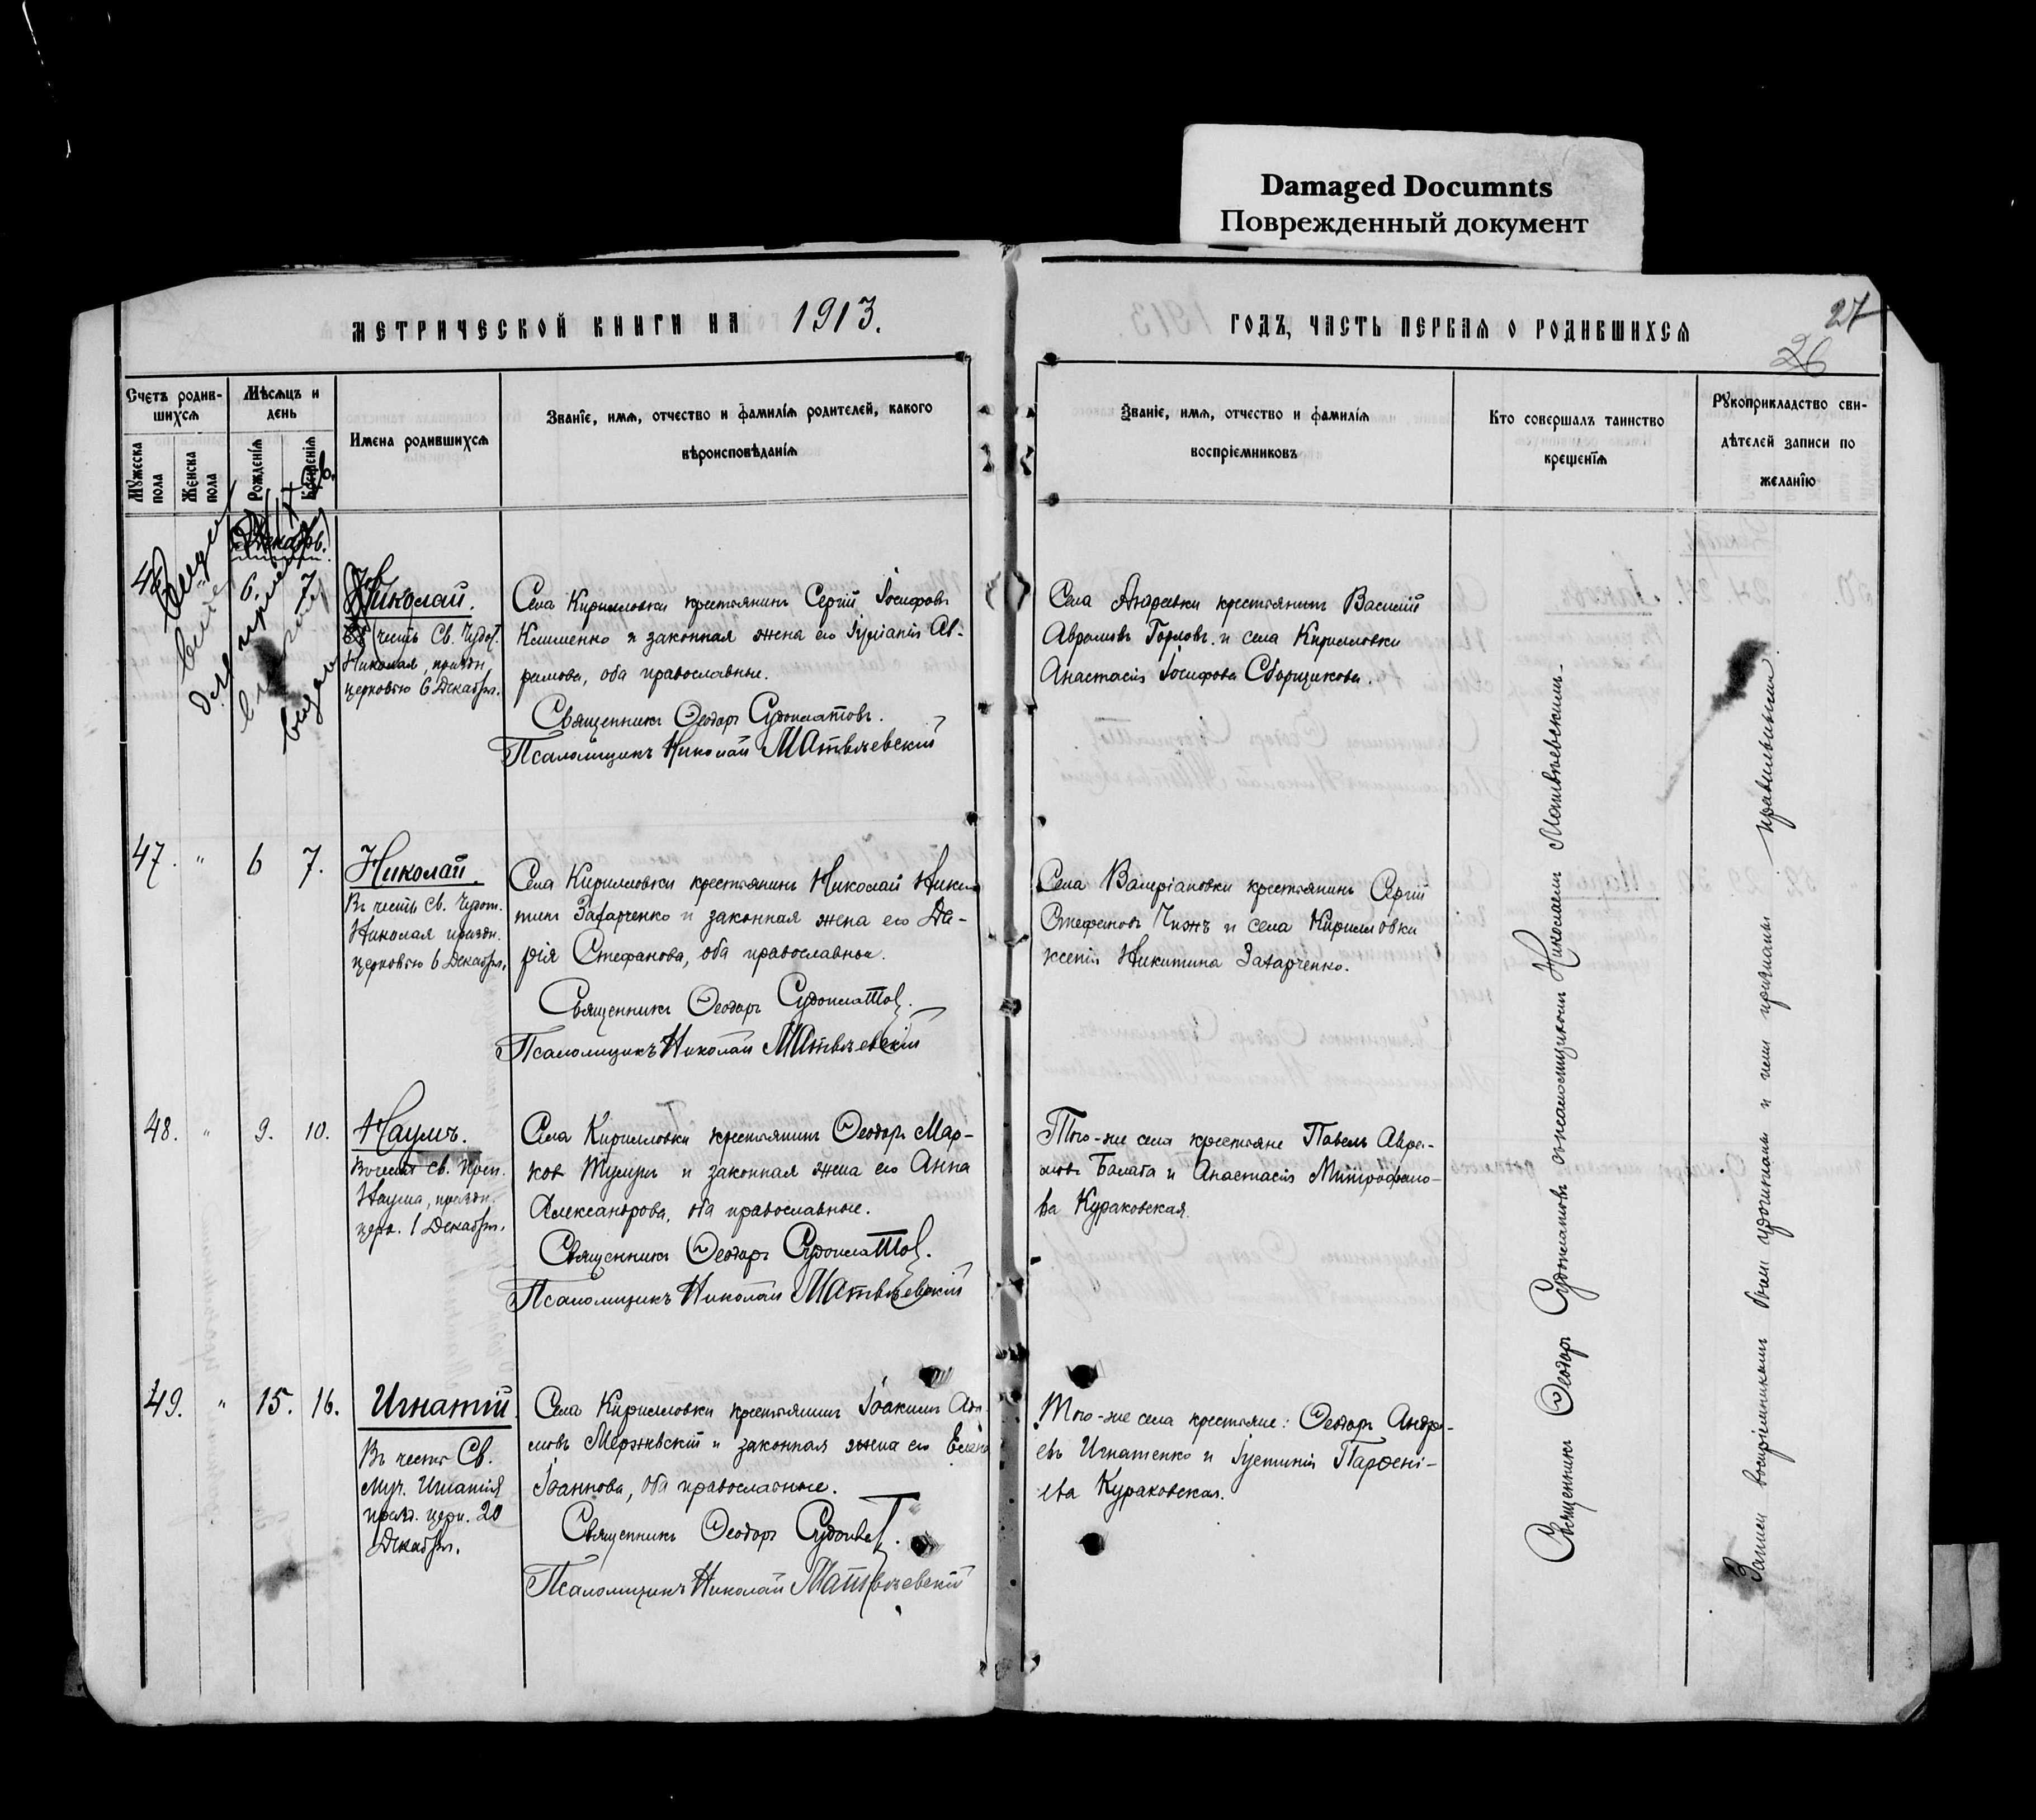 Damaged Documnts
Поврежденный документ
МЕТРИЧЕСКОЙ КНИГИ НА 1913.
ГОДЪ, ЧАСТЬ ПЕРВАЯ О РОДИВШИХСЯ
27
26
Счетъ родив-
шихся
Мѣсяцъ и
день
Мужеска
пола
Женска
пола
Рожденія
Крещенія
Имена родившихся
Званіе, имя, отчество и фамилія родителей, какого
вѣроисповѣданія
Званіе, имя, отчество и фамилія
воспріемниковъ
Кто совершалъ таинство
крещенія
Рукоприкладство сви-
дѣтелей записи по
желанію
Декабрь.
6. 7
Николай.
честь Св. Чудот.
Николая, праздн.
церковью 6 Декабря.
Села Кирилловки крестьянинъ Сергій Іосифовъ
Клименко и законная жена его Іуліанія Ав-
рамова, оба православные.
Священникъ Ѳеодоръ Судоплатовъ.
Псаломщикъ Николай Матвѣевскій
Села Андреевки крестьянинъ Василій
Аврамовъ Горловъ и села Кирилловки
Анастасія Іосифова Сборщикова.
47. " 6 7.
Николай.
Въ честь Св. Чудот.
Николая праздн.
церковью 6 Декабря.
Села Кирилловки крестьянинъ Николай Ники-
тинъ Захарченко и законная жена его Да-
рія Стефанова, оба православные.
Священникъ Ѳеодоръ Судоплатов.
Псаломщикъ Николай Матвѣевскій
Села Валеріановки крестьянинъ Сергій
Стефановъ Чижъ и села Кирилловки
Ксенія Никитина Захарченко.
48. " 9. 10.
Наумъ.
Въ честь Св. Прор.
Наума, праздн.
церк. 1 Декабря.
Села Кирилловки крестьянинъ Ѳеодоръ Мар-
ков и законная жена его Анна
Александрова, оба православные.
Священникъ Ѳеодоръ Судоплатов.
Псаломщикъ Николай Матвѣевскій
Того-же села крестьяне Павелъ Авра-
мовъ и Анастасія Митрофано-
ва Кураковская.
49. " 15. 16.
Игнатій.
Въ честь Св.
муч. Игнатія
празд. церк. 20
Декабря.
Села Кирилловки крестьянинъ Іоакимъ
и законная жена его Елена
Іоаннова, оба православные.
Священникъ Ѳеодоръ
Псаломщикъ Николай Матвѣевскій
Того-же села крестьяне: Ѳеодоръ Андре-
евъ Игнатенко и Іустинія Парѳені-
ева Кураковская.
Священникъ Ѳеодоръ Судоплатовъ съ псаломщикомъ Николаемъ Матвѣевскимъ.
Записи воспріемникамъ были прочитаны и ими признаны правильными.